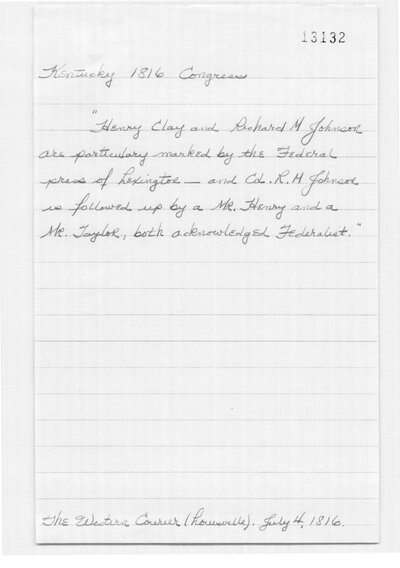 13132
Kentucky 1816 Congress
"Henry Clay and Richard M Johnson
are particulary marked by the Federal
press of Lexington — and Col. R. M Johnson
is followed up by a Mr. Henry and a
Mr. Taylor, both acknowledged Federalist."
The Western Courier (Louisville). July 4, 1816.